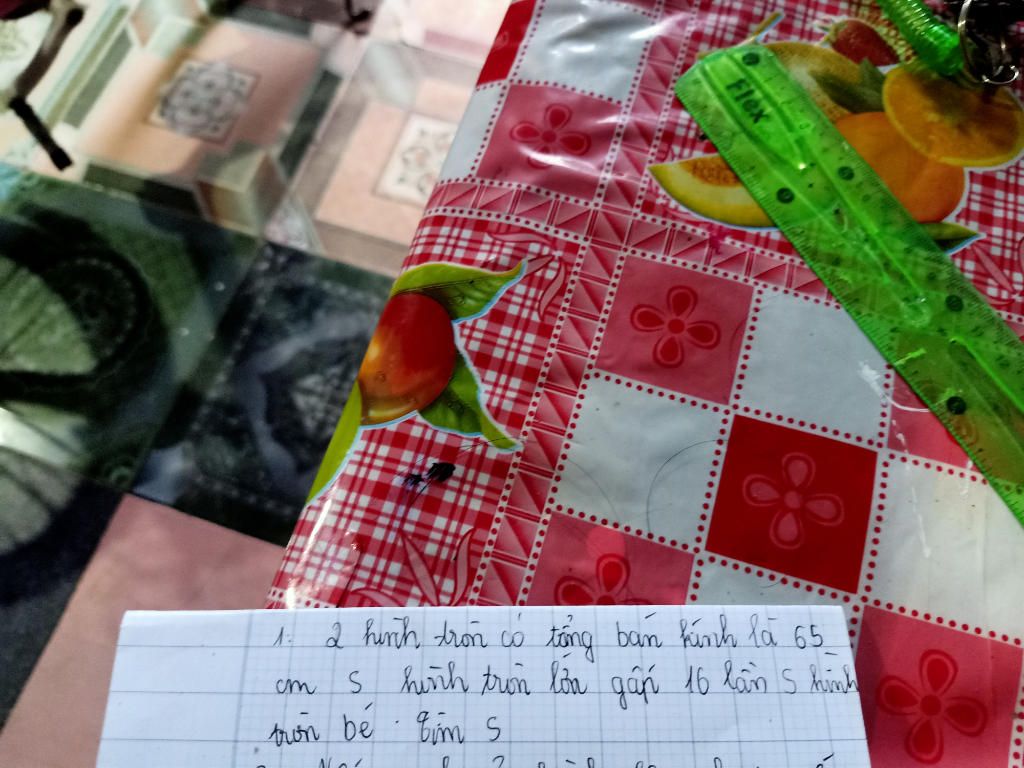 Flex
1. 2 hình tròn có tổng bán kính là 65
cm S hình tròn lớn gấp 16 lần S hình
tròn bé. Tìm S